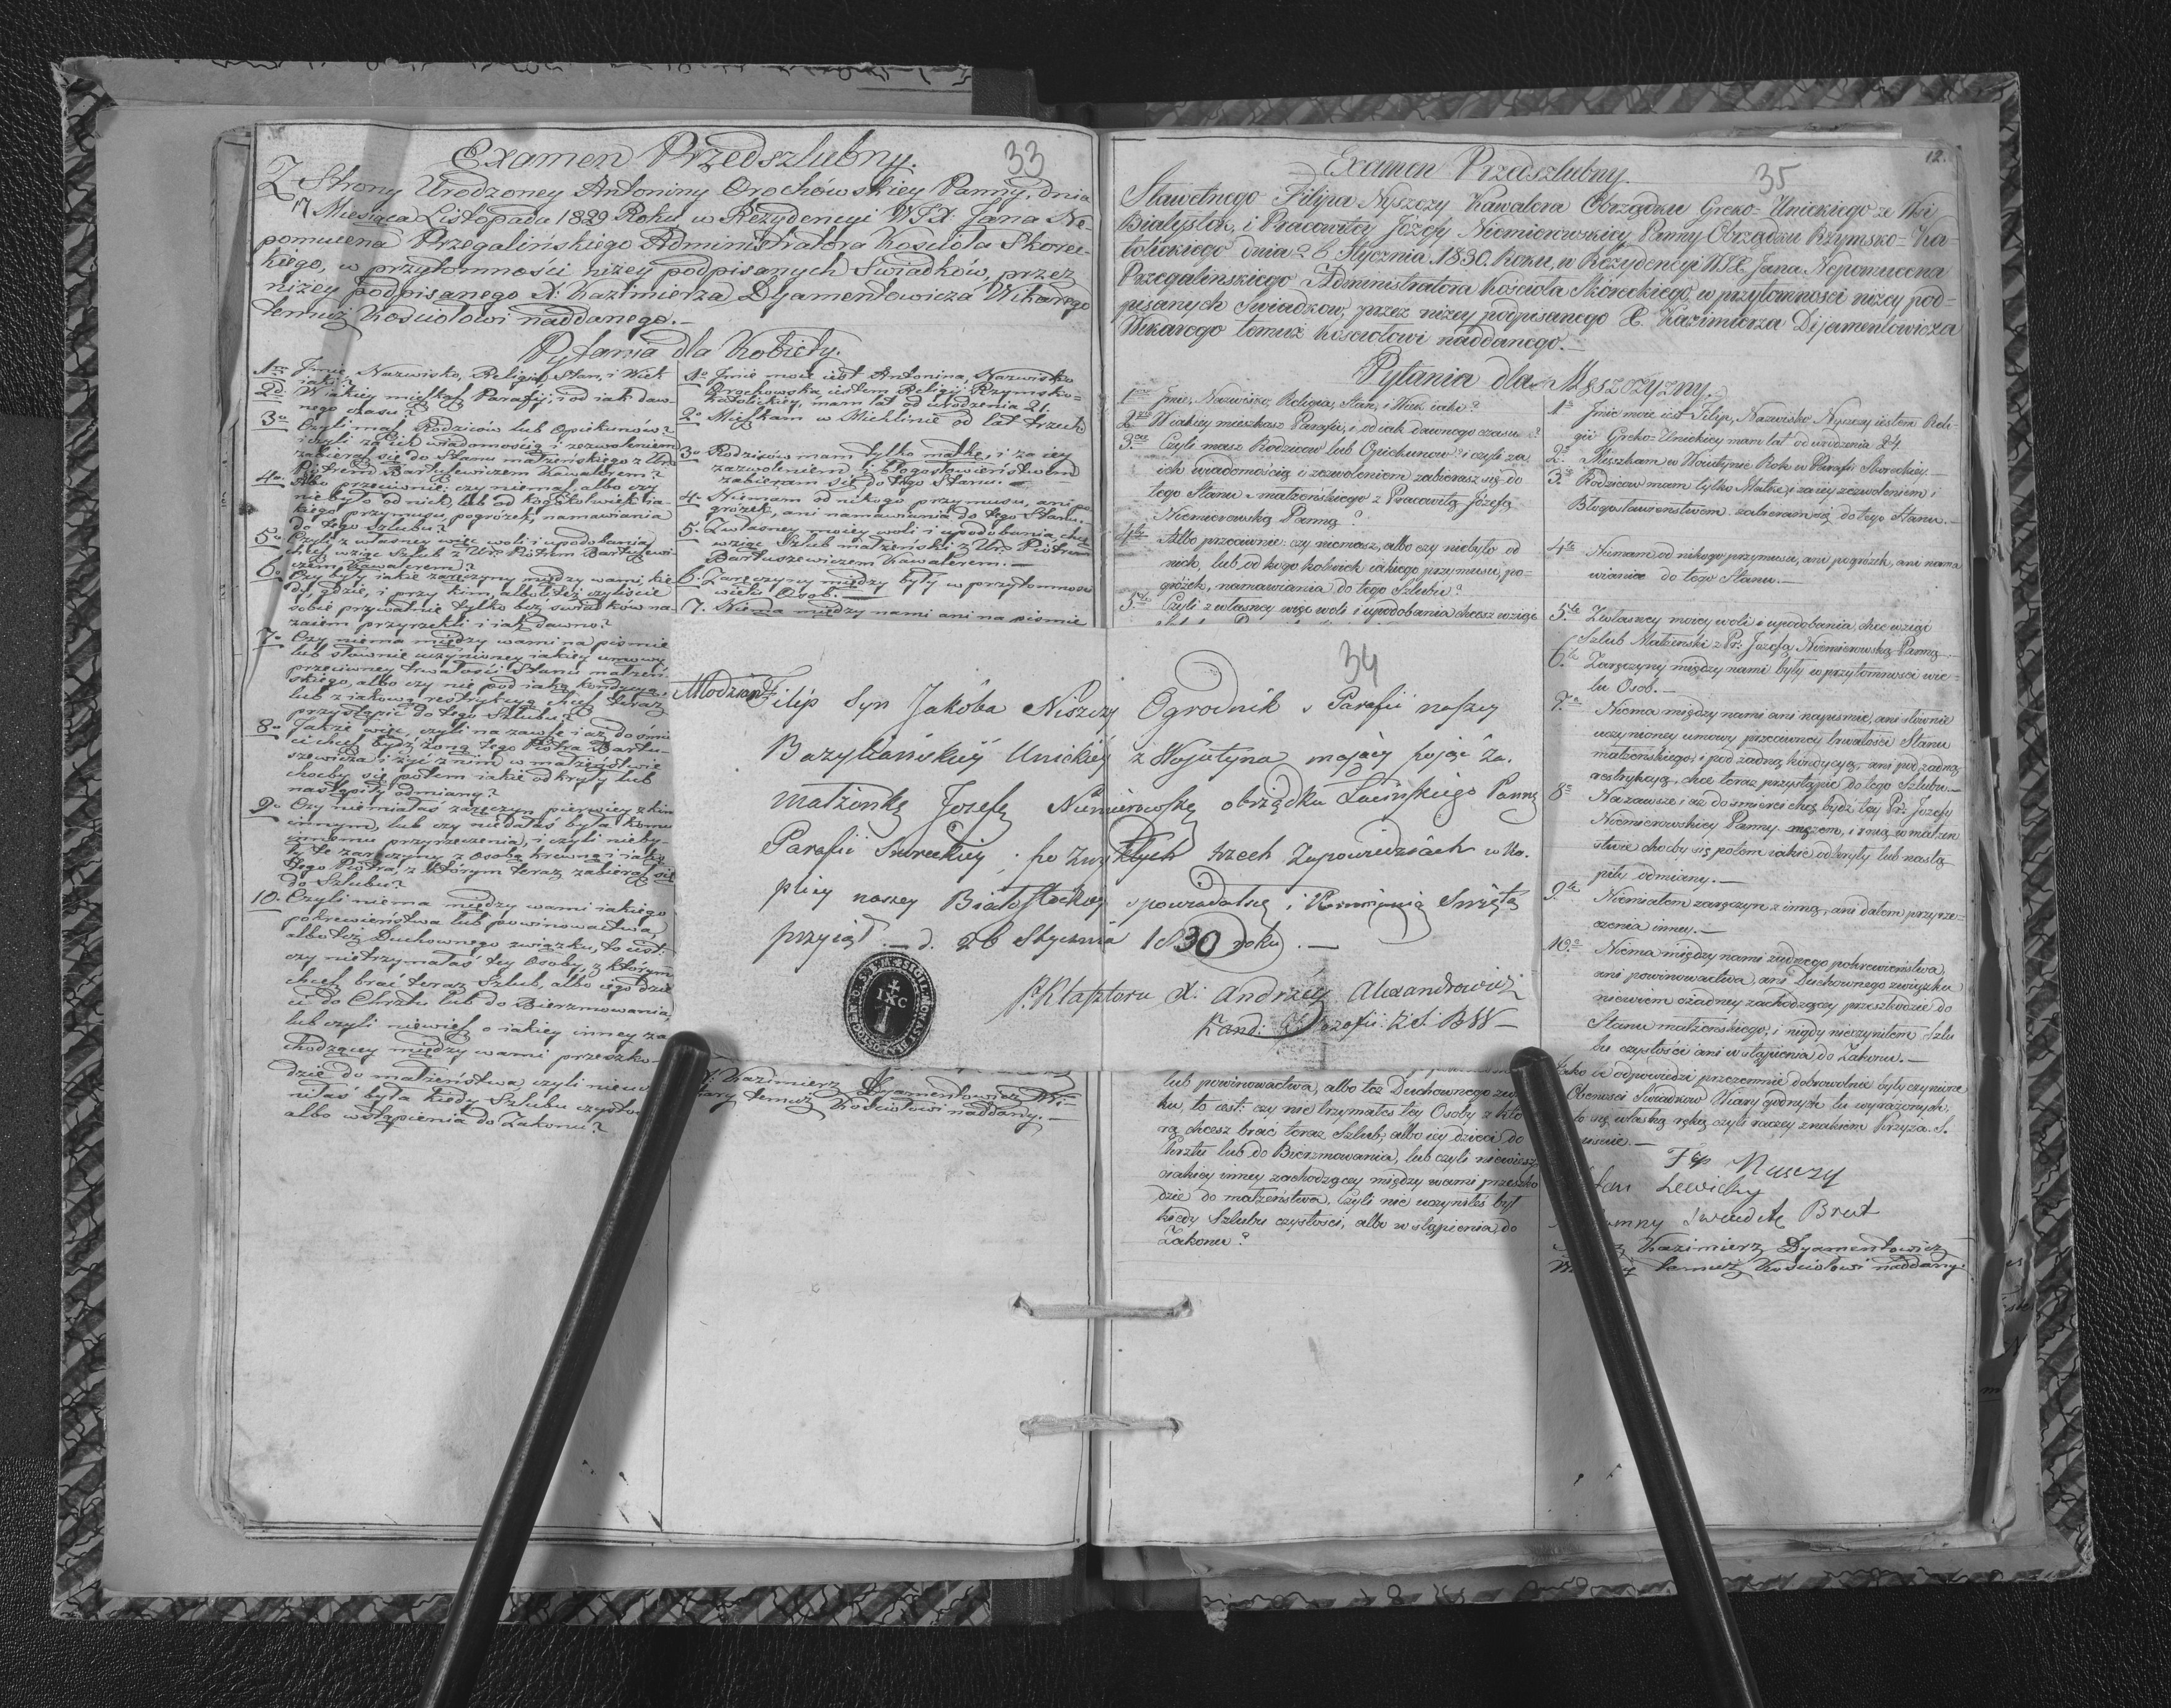 Examen Przedszlubny.
33
Z Strony Urodzoney Antoniny Orochówskiey Panny, dnia
17 Miesiąca Listopadu 1829 Roku w Rezydencyi WJX. Jana Ne-
pomucena Przegalińskiego Administratora Kościoła Skorec-
kiego, w przytomności niżey podpisanych Swiadków, przez
niżey podpisanego X: Kazimierza Dyamentowicza Wikarego
temuż Kościołowi naddanego.—
Pytania dla Kobiety.
1mo Jmie, Nazwisko, Religia, Stan, i Wiek
iaki?
2do W iakiey mieszkasz Parafii, i od iak daw-
nego czasu?
3o Czyli masz Rodziców lub Opiekunów?
i czyli za ich wiadomością i zezwoleniem
zabierasz się do Stanu małżeńskiego z Ur:
Piotrem Bartuszewiczem Kawalerem?
4o Albo przeciwnie; czy niemasz albo czy
niebyło od nich, lub od kogożkolwiek ia-
kiego przymusu, pogróżek, namawiania
do tego Szlubu?
5o Czyli z własney więc woli i upodobania
chcesz wziąc Szlub z Ur: Piotrem Bartuszewi-
czem Kawalerem?
6o Czy były iakie zaręczyny między wami, kie-
dy, gdzie, i przy kim, albo też czyliście
sobie prywatnie tylko bez swiadków na-
zaiem przyrzekli i iak dawno?
7o Czy niema między wami na pismie
lub słownie uczynioney iakiey umowy,
przeciwney trwałości Stanu małżeń-
skiego, albo czy nie pod iaką kondycyą,
lub z iakową restrykcyą chcesz teraz
przystąpić do tego Szlubu?
8o Jakże więc, czyli na zawsze i aż do śmier-
ci chcesz bydź żoną tego Piotra Bartu-
szewicza i żyć z nim w małżeństwie
choćby się potem iakie odkryły lub
nastąpiły odmiany?
9o Czy niemiałaś zaręczyn pierwiey z kim
innym, lub czy niedałaś była komu
innemu przyrzeczenia, i czyli nieby-
ły te zaręczyny z osobą krewną i iaką
tego Piotra, z którym teraz zabierasz się
do Szlubu?
10. Czyli niema między wami iakiego
pokrewieństwa lub powinowactwa,
albo też Duchownego związku, to iest:
czy nietrzymałaś tey Osoby, z którym
chcesz brać teraz Szlub, albo iego dzie-
ci do Chrztu lub do Bierzmowania,
lub czyli niewiesz o iakiey inney za-
chodzącey między wami przeszko-
dzie do małżeństwa, czyli nieuczy-
niłaś była kiedy Szlubu czystości
albo wstąpienia do Zakonu?
1o Jmie moie iest Antonina, Nazwisko
Orochowska, iestem Religii Rzymsko=
Katolickiey, mam lat od urodzenia 21.
2o Mieszkam w Michlinie od lat trzech.
3o Rodziców mam tylko matkę, i za iey
zezwoleniem, i błogosławieństwem
zabieram się do tego Stanu.—
4. Niemam od nikogo przymusu, ani po-
gróżek, ani namawiania do tego Stanu.—
5. Z własney moiey woli i upodobania, chcę
wziąc Szlub małżeński z Ur: Piotrem
Bartuszewiczem Kawalerem.—
6. Zaręczyny między były w przytomności
wielu Osob.—
7. Niema między nami ani na pismie
X. Kazimierz Dyamentowicz Wi-
kary temuż Kościołowi naddany.—
34
Młodzian Filip Syn Jakóba Niszczy Ogrodnik s Parafii naszey
Bazyliańskiey Unickiey z Wojutyna mający pojąc za
małżonkę Jozefę Niemierowskę obrządku Łacińskiego Pannę
Parafii Sureckiey; po zwykłych trzech Zapowiedziach w Ka-
plicy naszey Białostockiey spowiadał się i Kommunią Swiętą
przyiął.— d. 26 Stycznia 1830 roku.—
P. Klasztoru X: Andrzey Alexandrowicz
Kand: Filozofii: Z.S.B.W—
IXC
Examen Przedszlubny.
35
12.
Sławetnego Filipa Nyszczy Kawalera Obrządku Greko=Unickiego ze Wsi
Białystok, i Pracowitey Józefy Niemierowskiey Panny Obrządku Rzymsko=Ka-
tolickiego dnia 26 Stycznia 1830. Roku, w Rezydencyi WJX. Jana Nepomucena
Przegalińskiego Administratora Kościoła Skóreckiego, w przytomności niżey pod=
pisanych Swiadków, przez niżey podpisanego X. Kazimierza Dijamentowicza
Wikarego temuż Kościołowi naddanego.—
Pytania dla Męszczyzny.
1mo Jmie, Nazwisko, Religia, Stan, i Wiek iaki?
2do W iakiey mieszkasz Parafii, i od iak dawnego czasu?
3cie Czyli masz Rodziców lub Opiekunów? i czyli za
ich wiadomością i zezwoleniem zabierasz się do
tego Stanu małżeńskiego z Pracowitą Józefą
Niemierowską Panną?
4te Albo przeciwnie: czy niemasz, albo czy niebyło od
nich, lub od kogo kolwiek iakiego przymusu, po-
gróżek, namawiania do tego Szlubu?
5te Czyli z własney więc woli i upodobania chcesz wziąć
lub powinowactwa, albo też Duchownego zwią-
zku, to iest: czy nie trzymałeś tey Osoby z któ-
rą chcesz brać teraz Szlub, albo iey dzieci do
Chrztu lub do Bierzmowania, lub czyli niewiesz
o iakiey inney zachodzącey między wami przeszko-
dzie do małżeństwa, Czyli nie uczyniłeś był
kiedy Szlubu czystości, albo wstąpienia do
Zakonu?
1o Jmie moie iest Filip, Nazwisko Nyszczy iestem Reli-
gii Greko=Unickiey mam lat od urodzenia 24.
2o Mieszkam w Woiutynie Rok w Parafii Skoreckiey.
3o Rodzicow mam tylko Matkę, i za iey zezwoleniem i
Błogosławieństwem zabieram się do tego Stanu.—
4te Niemam od nikogo przymusu, ani pogróżek, ani nama-
wiania do tego Stanu.—
5te Z własney moiey woli i upodobania, chce wziąć
Szlub Małżeński z Pr: Jozefą Niemierowską Panną.
6te Zaręczyny między nami były w przytomności wie-
lu Osob.—
7e Niema między nami ani napismie, ani słownie
uczynioney umowy przeciwney trwałości Stanu
małżeńskiego; i pod żadną kondycyą, ani pod żadną
restrykcyą, chce teraz przystąpić do tego Szlubu.—
8e Nazawsze i aż do śmierci chcę bydź tey Pr: Jozefy
Niemierowskiey Panny mężem, i z nią w małżeń-
stwie choćby się potem iakie odkryły lub nastą-
piły odmiany.—
9te Niemiałem zaręczyn z inną, ani dałem przyrze-
czenia inney.—
10e Niema między nami żadnego pokrewieństwa,
ani powinowactwa, ani Duchownego związku
niewiem o żadney zachodzącey przeszkodzie do
Stanu małżeńskiego; i nigdy nieczyniłem Szlu-
bu czystości ani wstąpienia do Zakonu.—
Jako te odpowiedzi przezemnie dobrowolnie były czynione
Obecności Swiadków Wiary godnych tu wyrażonych,
się własną ręką czyli raczey znakiem Krzyża S.
Nyszczy
Jan Lewicky
Brat
Kazimierz Dyamentowicz
temuż Kościołowi naddany.